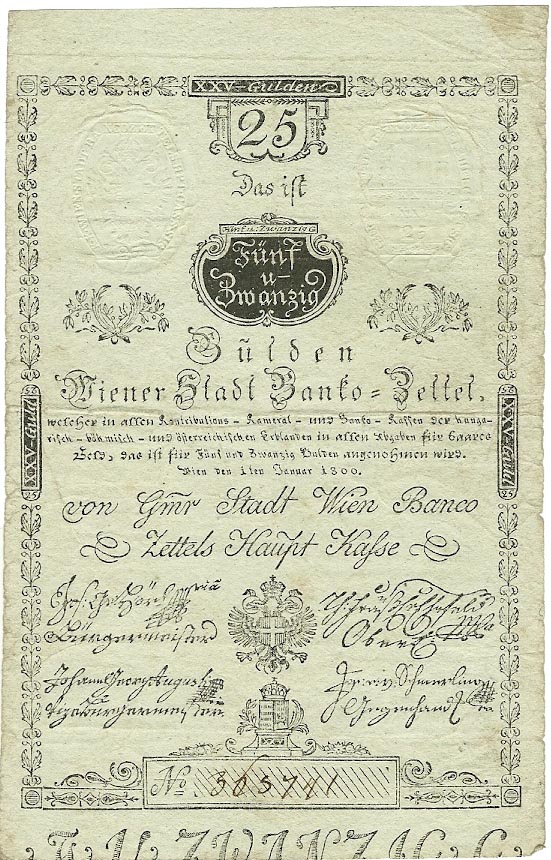 XXV-Gulden
25
Das ist
Fünf u: Zwanzig G
Fünf
u-
Zwanzig
Gulden
Wiener Stadt Banko=Zettel,
welcher in allen Kontributions - Kameral - und Banko - Kassen der hunga-
risch - böhmisch - und österreichischen Erblanden in allen Abgaben für baares
Geld, das ist für Fünf und Zwanzig Gulden angenohmen wird.
Wien den 1ten Januar 1800.
XXV-Guld
25
XXV-Guld
25
von Gmr Stadt Wien Banco
Zettels Haupt Kasse
Bürgermeister
Johann Georg August
Vizebürgermeister
Schmerling
Gegenhand
No. 365741
ZWANZIG G